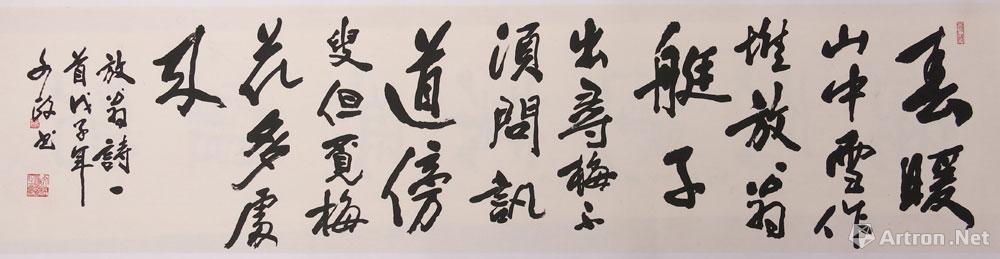 春暖
山中雪作
堆放翁
艇子
出尋梅不
須問訊
道傍
叟但覓梅
花多處
来
放翁詩一
首戊子年
政书
Artron.Net